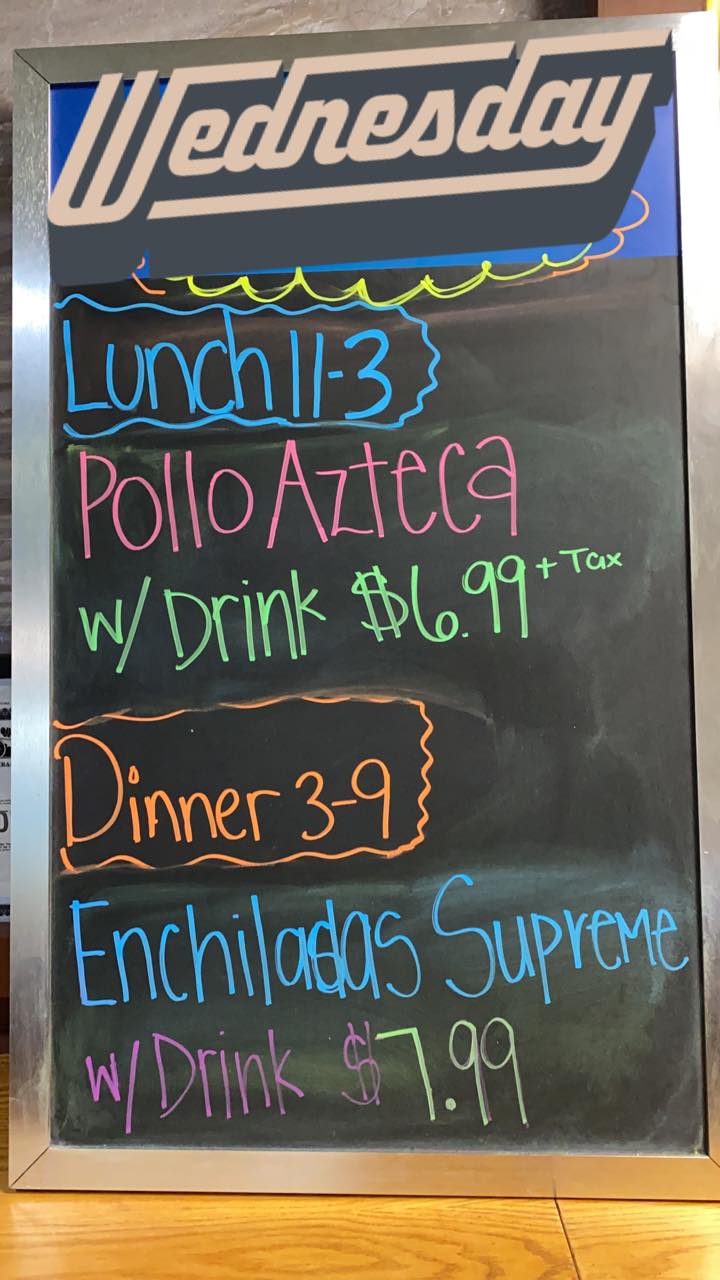 Wednesday
Lunch 11-3
Pollo Azteca
w/ Drink $6.99 + Tax
Dinner 3-9
Enchiladas Supreme
w/ Drink $7.99